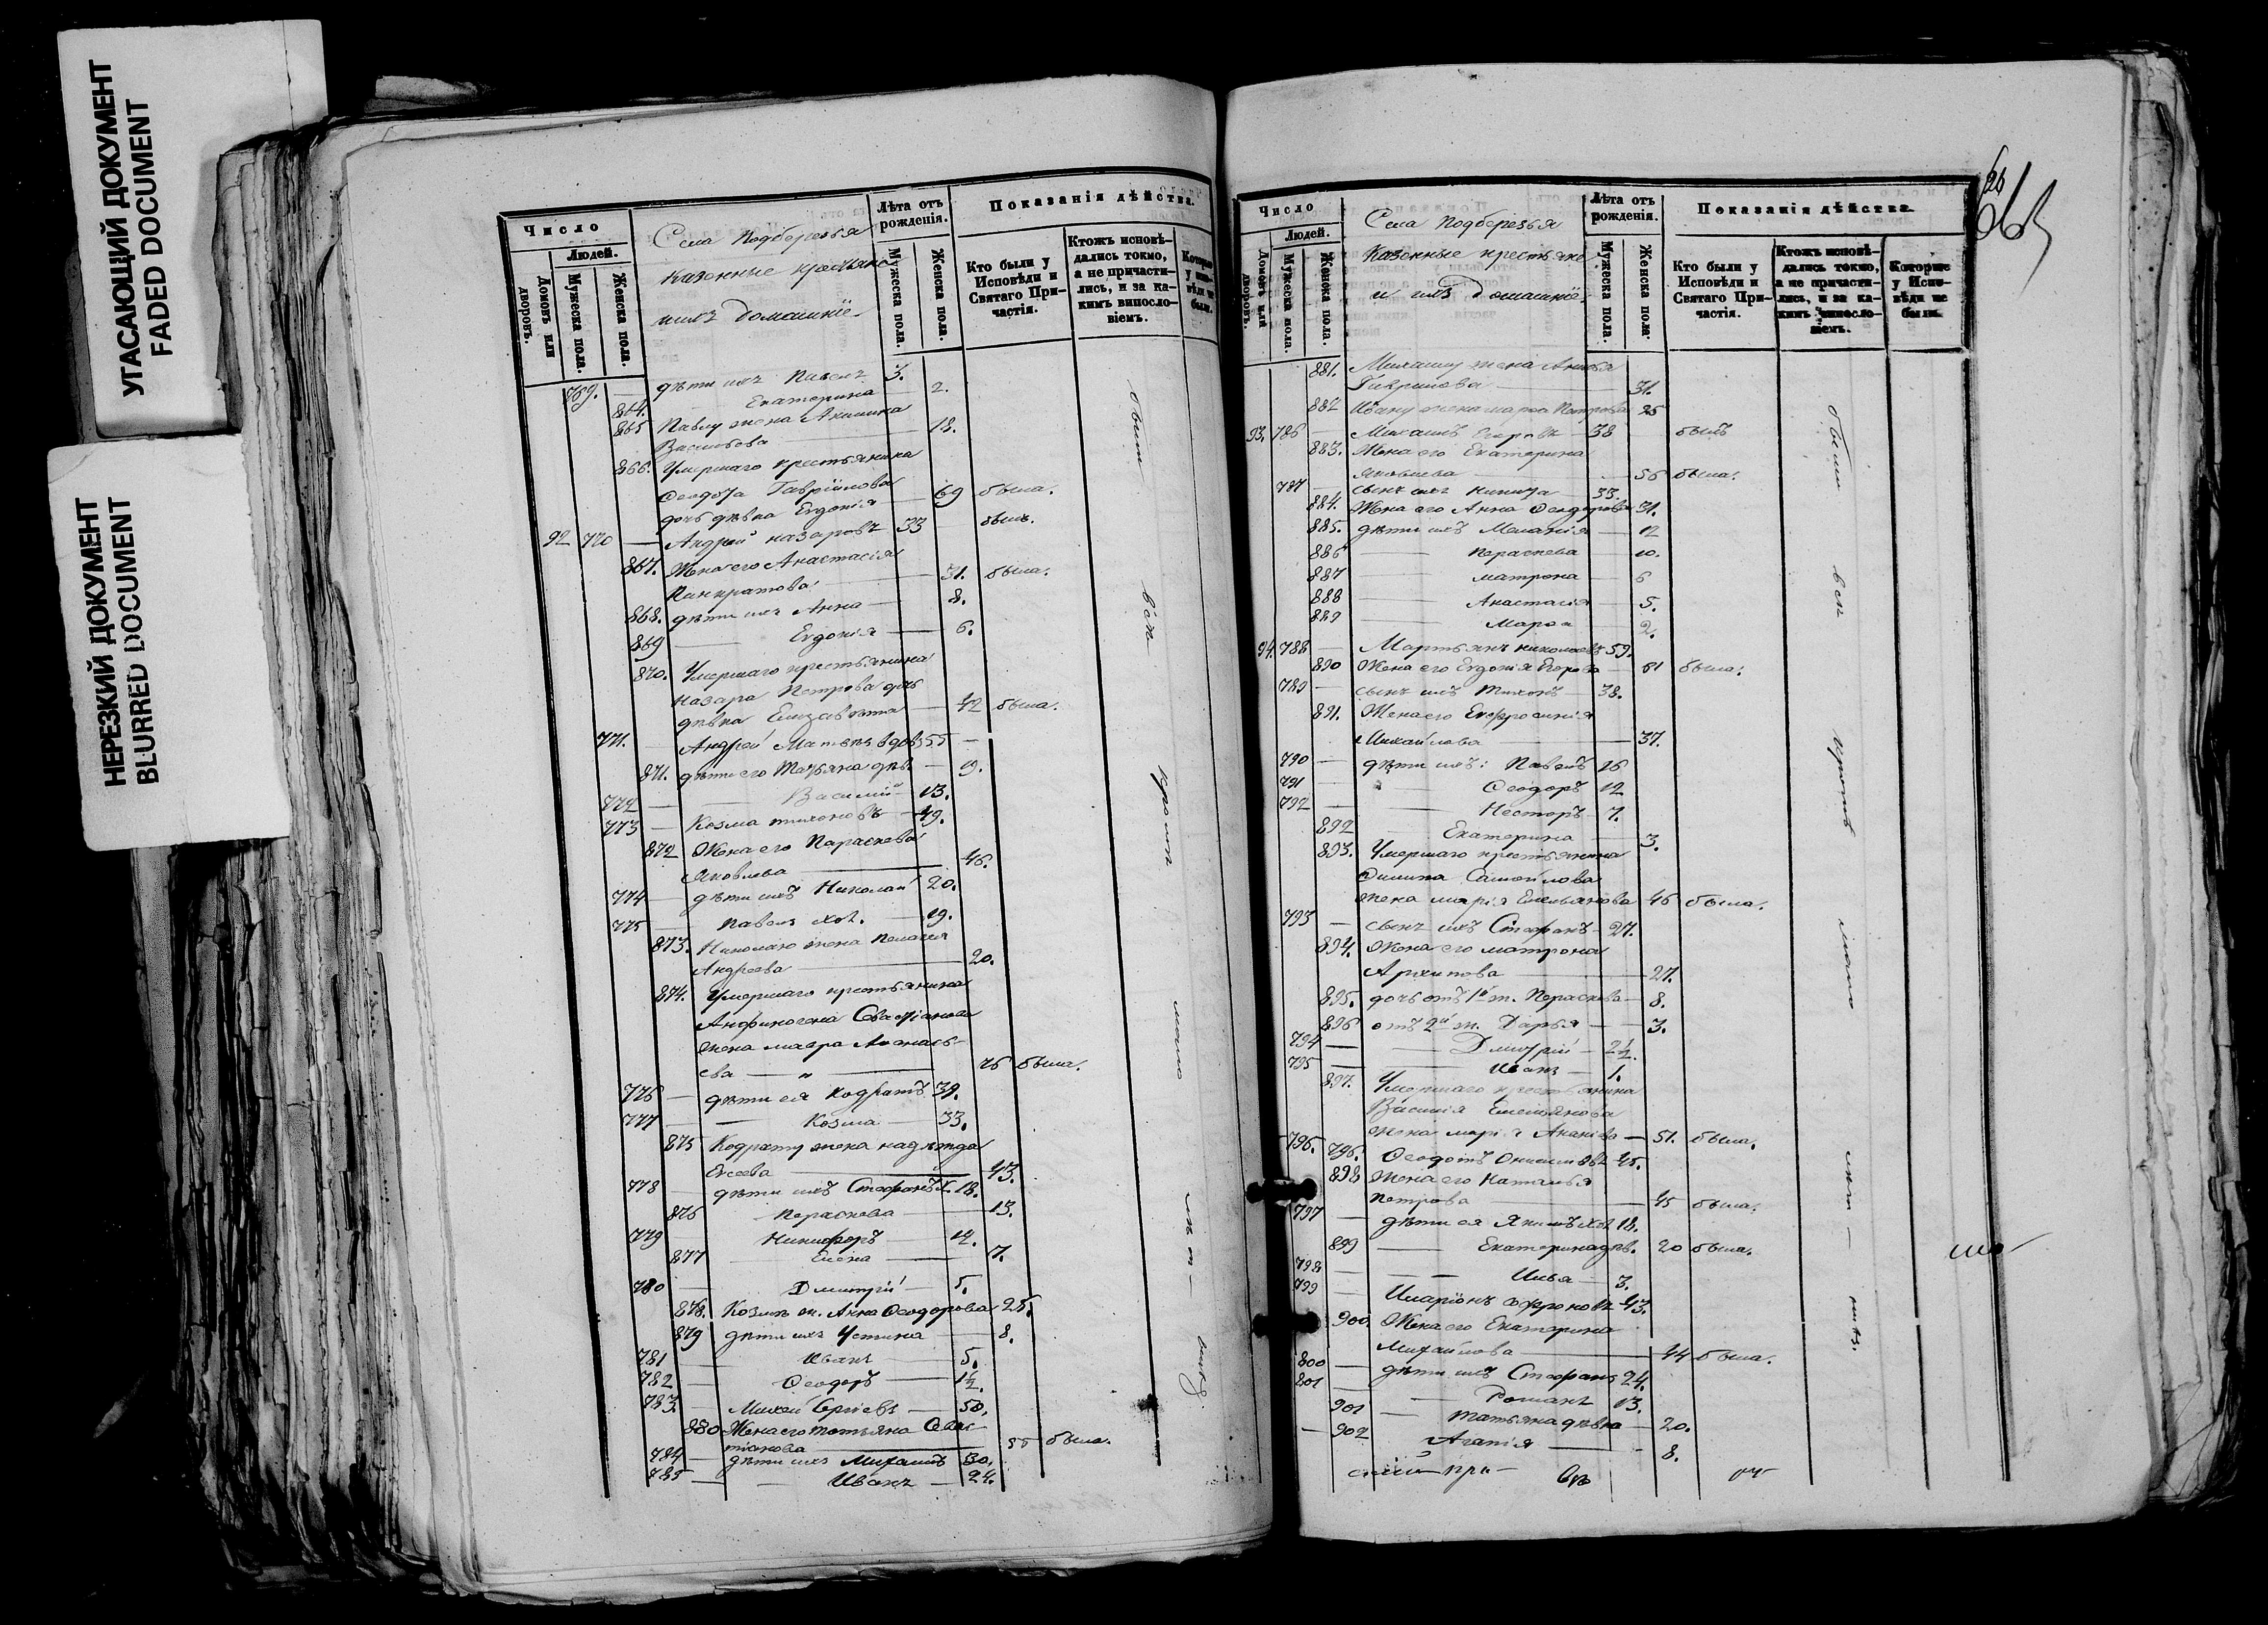 УГАСАЮЩИЙ ДОКУМЕНТ
FADED DOCUMENT
НЕРЕЗКИЙ ДОКУМЕНТ
BLURRED DOCUMENT
Число
Людей.
Домовъ или дворовъ.
Мужеска пола.
Женска пола.
Села Подберезья
казенные крестьяне
ихъ домашніе
Лѣта отъ рожденія.
Мужеска пола.
Женска пола.
Показанія дѣйства.
Кто были у Исповѣди и Святаго Причастія.
Ктожъ исповѣдались токмо, а не причастились, и за какимъ винословіемъ.
Которые у Исповѣди не были.
769. — дѣти ихъ Павелъ 3.
864. Екатерина — 2.
865 Павлу жена Акилина
Васильева — 18.
866. Умершаго крестьянина
Ѳеодота Гаврійлова
дочь дѣвка Евдокія — 69 была.
92 770 — Андрей Назаровъ 33 — былъ.
867. Жена его Анастасія
Панкратова — 31. была.
868. дѣти ихъ Анна — 8.
869 — Евдокія — 6.
870. Умершаго крестьянина
Назара Петрова дочь
дѣвка Елизавета — 42 была.
771. — Андрей вдов. 55 —
871. дѣти его Татьяна дѣв. — 19.
772 — Василій — 13.
773 — Козма Тихоновъ — 49.
872 Жена его Параскева
Яковлева — 46.
774 — дѣти ихъ Николай 20.
775 — Павелъ хол. — 19.
873. Николаю жена Пелагея
Андреева — 20.
874. Умершаго крестьянина
жена Мавра Аѳанась-
ева — " — 76 была.
776 — дѣти ея Кодратъ 39.
777 — Козма — 33.
875 Кодрату жена Надежда
— 43.
778 — дѣти ихъ Стефанъ х. 18.
876 — Параскева — 13.
779 — Никифоръ — 12.
877 — Елена — 7.
780 — Дмитрій — 5.
878. Козмѣ ж. Анна Ѳеодорова 25.
879 дѣти ихъ Устина — 8.
781 — Иванъ — 5.
782 — Ѳеодоръ — 1½.
783. — Сергіевъ — 50.
880 Жена его Татьяна Севас-
тіанова — была.
784 — дѣти ихъ Михаилъ 30.
785 — Иванъ — 24.
были вси кромѣ
Число
Людей.
Домовъ или дворовъ.
Мужеска пола.
Женска пола.
Села Подберезья
Казенные крестьяне
и ихъ домашніе.
Лѣта отъ рожденія.
Мужеска пола.
Женска пола.
Показанія дѣйства.
Кто были у Исповѣди и Святаго Причастія.
Ктожъ исповѣдались токмо, а не причастились, и за какимъ винословіемъ.
Которые у Исповѣди не были.
881. Михаилу жена
Гаврилова — 31.
882 Ивану жена Марѳа Петрова 25
93. 786 — Михаилъ Егоровъ — 38 былъ
883. Жена его Екатерина
Яковлева — 56 была.
787 — сынъ ихъ Никита — 33.
884. Жена его Анна Ѳеодорова 31.
885. дѣти ихъ Меланія — 12
886 — Параскева — 10.
887 — Матрона — 6
888 — Анастасія — 5.
889 — Марѳа — 2.
94. 788 — Мартьянъ Николаевъ 59.
890 Жена его Евдокія Егорова — 61 была.
789 — сынъ ихъ Тихонъ — 38.
891. Жена его Евфросинія
Михайлова — 37.
790 — дѣти ихъ: Павелъ 16
791 — Ѳеодоръ 12
792 — Несторъ 7.
892 — Екатерина — 3.
893. Умершаго крестьянина
Филипа Самойлова
жена Марія Емельянова 46 была.
793 — сынъ ихъ Стефанъ — 27.
894. Жена его Матрона
Архипова — 27.
895. дочь отъ 1й ж. Параскева — 8.
896 отъ 2й ж. Дарья — 3.
794 — Дмитрій — 2½.
795 — Иванъ — 1.
897. Умершаго крестьянина
Василія Емельянова
жена Марія — 51. была.
796. 796. Ѳеодотъ 45.
898 Жена его Наталья
Петрова — 45 была.
797 — дѣти ея Якимъ хол. 18.
899 — Екатерина дѣв. 20 была.
798 — Илья — 3.
799 — Иларіонъ 43.
900 Жена его Екатерина
Михайлова — 44 была.
800 — дѣти ихъ Стефанъ 24.
801 — Романъ 13.
901 — Татьяна дѣвка — 20.
902 Агапія — 8.
были вси кромѣ